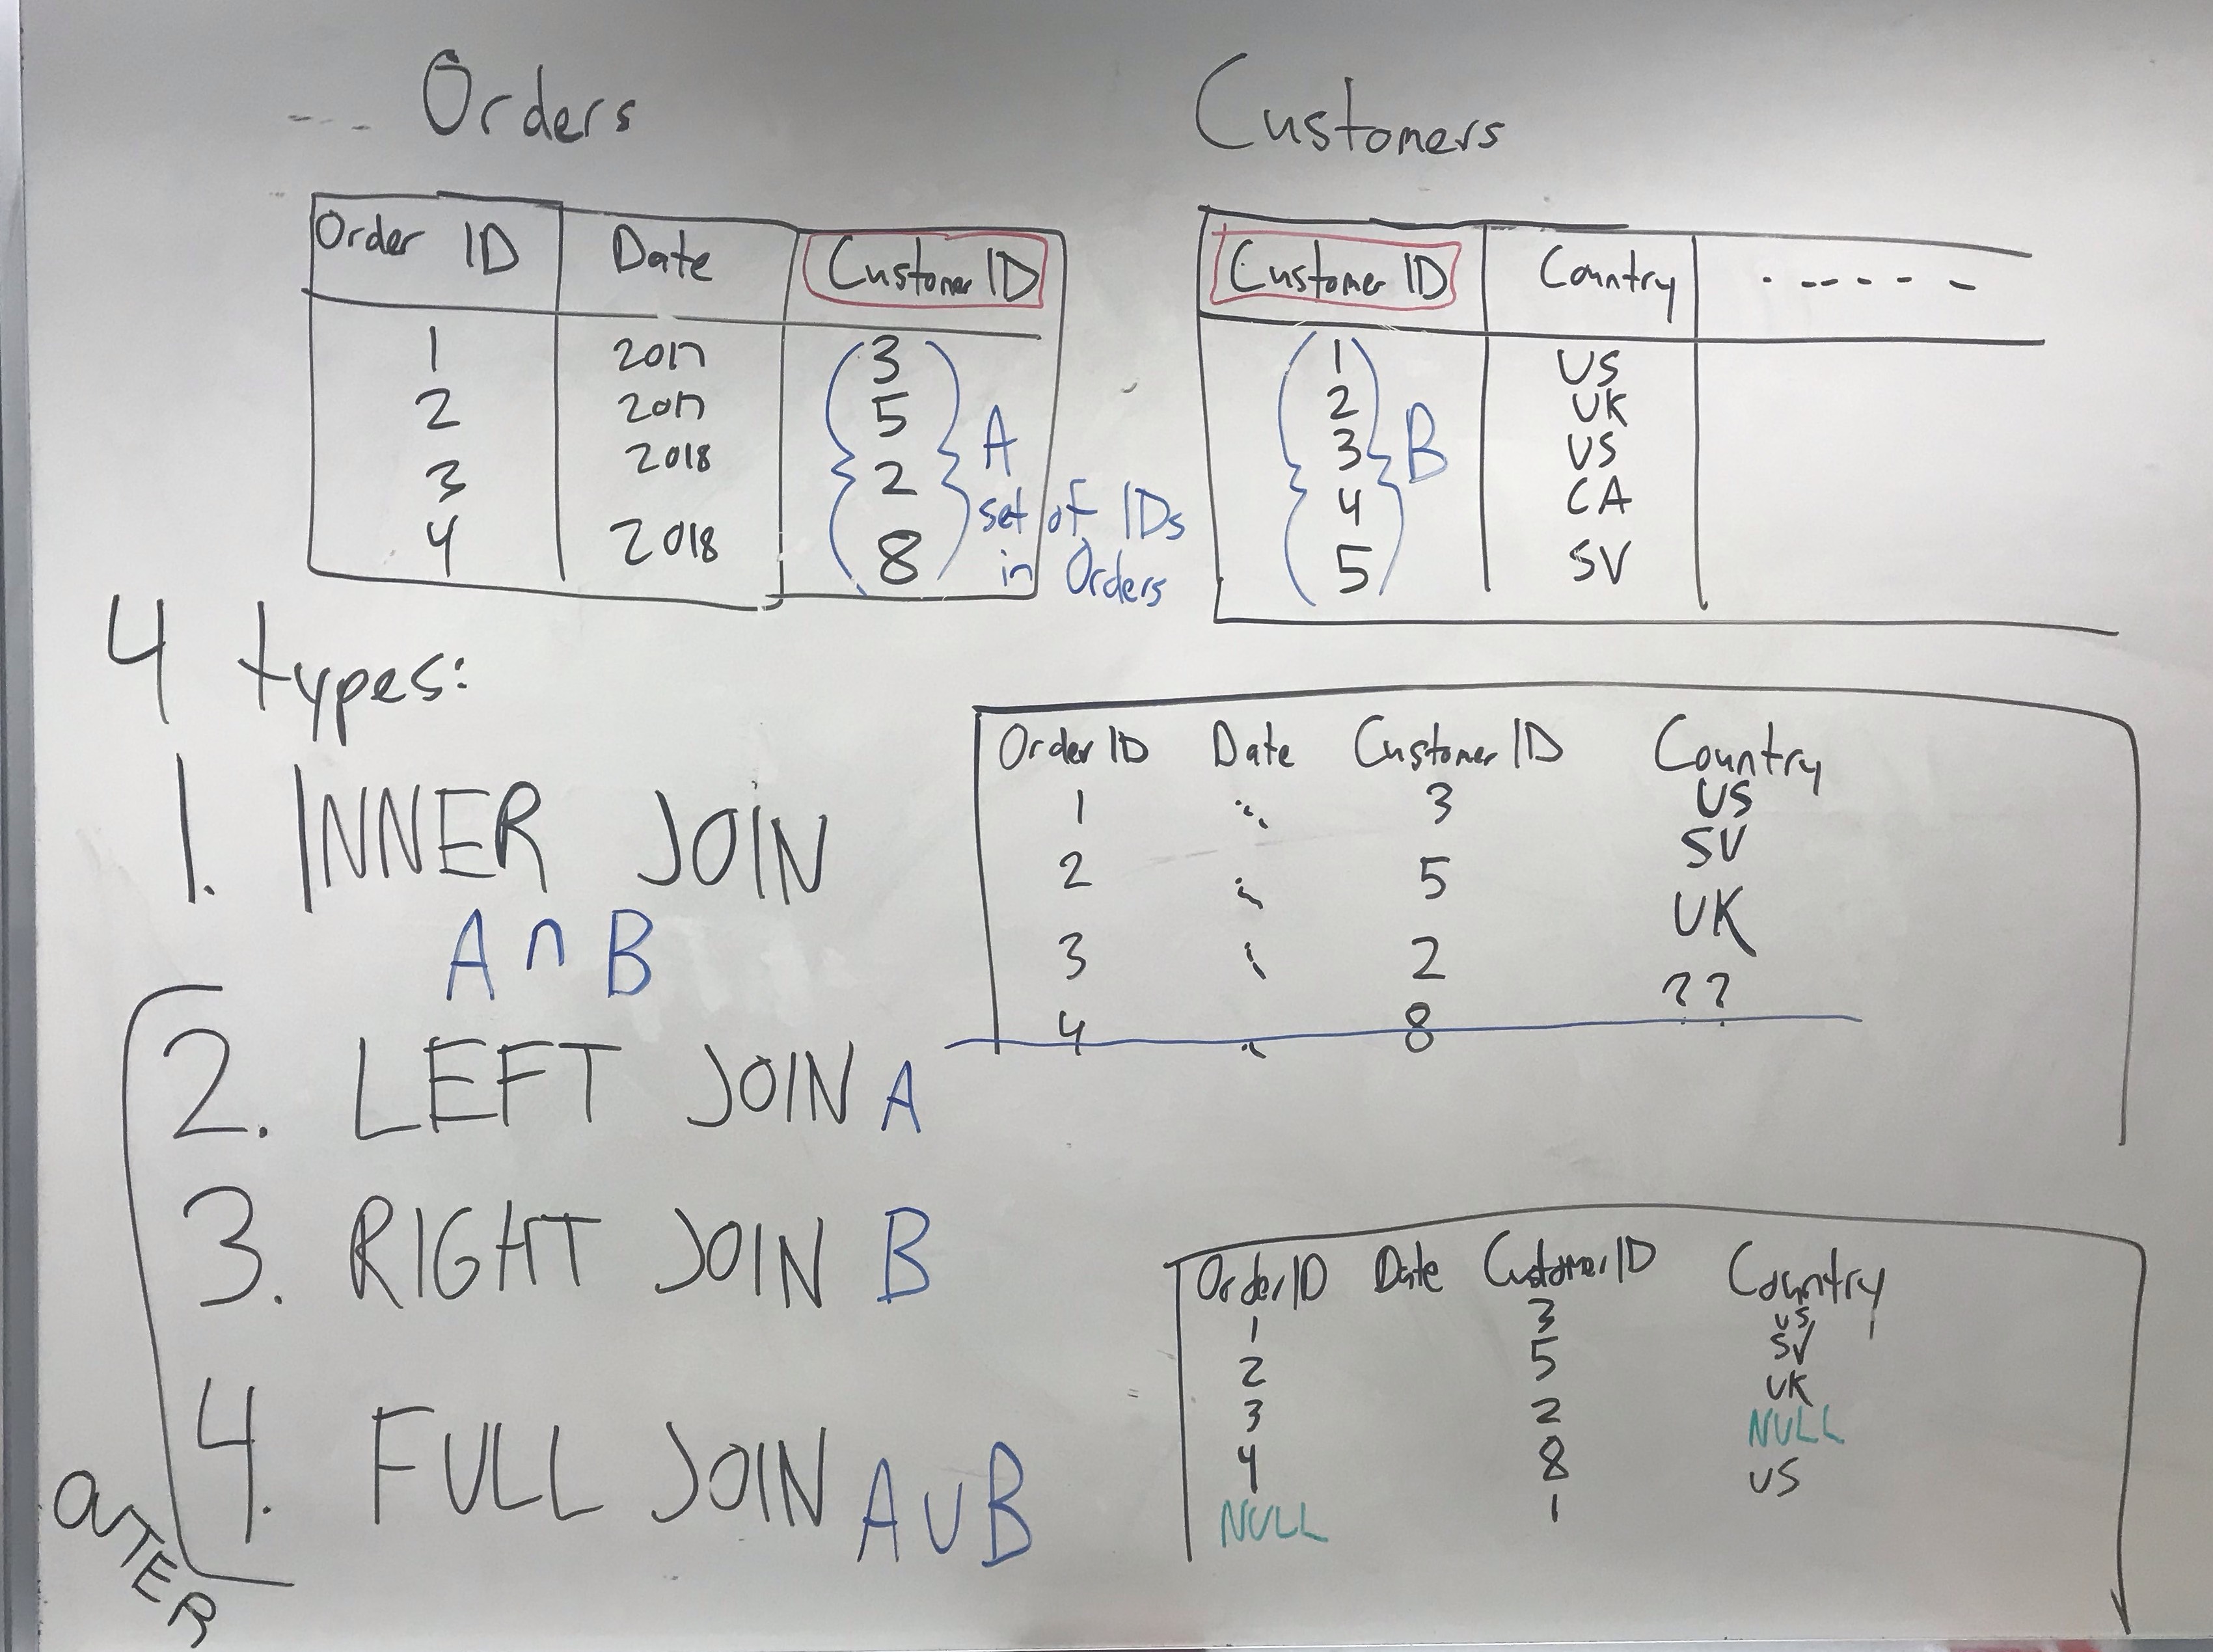 Orders
Customers
Order ID Date Customer ID
1 2017 3
2 2017 5
3 2018 2
4 2018 8
A
set of IDs
in Orders
Customer ID Country
1 US
2 UK
3 US
4 CA
5 SV
B
4 types:
1. INNER JOIN
A ∩ B
2. LEFT JOIN A
3. RIGHT JOIN B
4. FULL JOIN A ∪ B
OUTER
Order ID Date Customer ID Country
1 3 US
2 5 SV
3 2 UK
4 8 ??
Order ID Date Customer ID Country
1 3 US
2 5 SV
3 2 UK
4 8 NULL
NULL 1 US